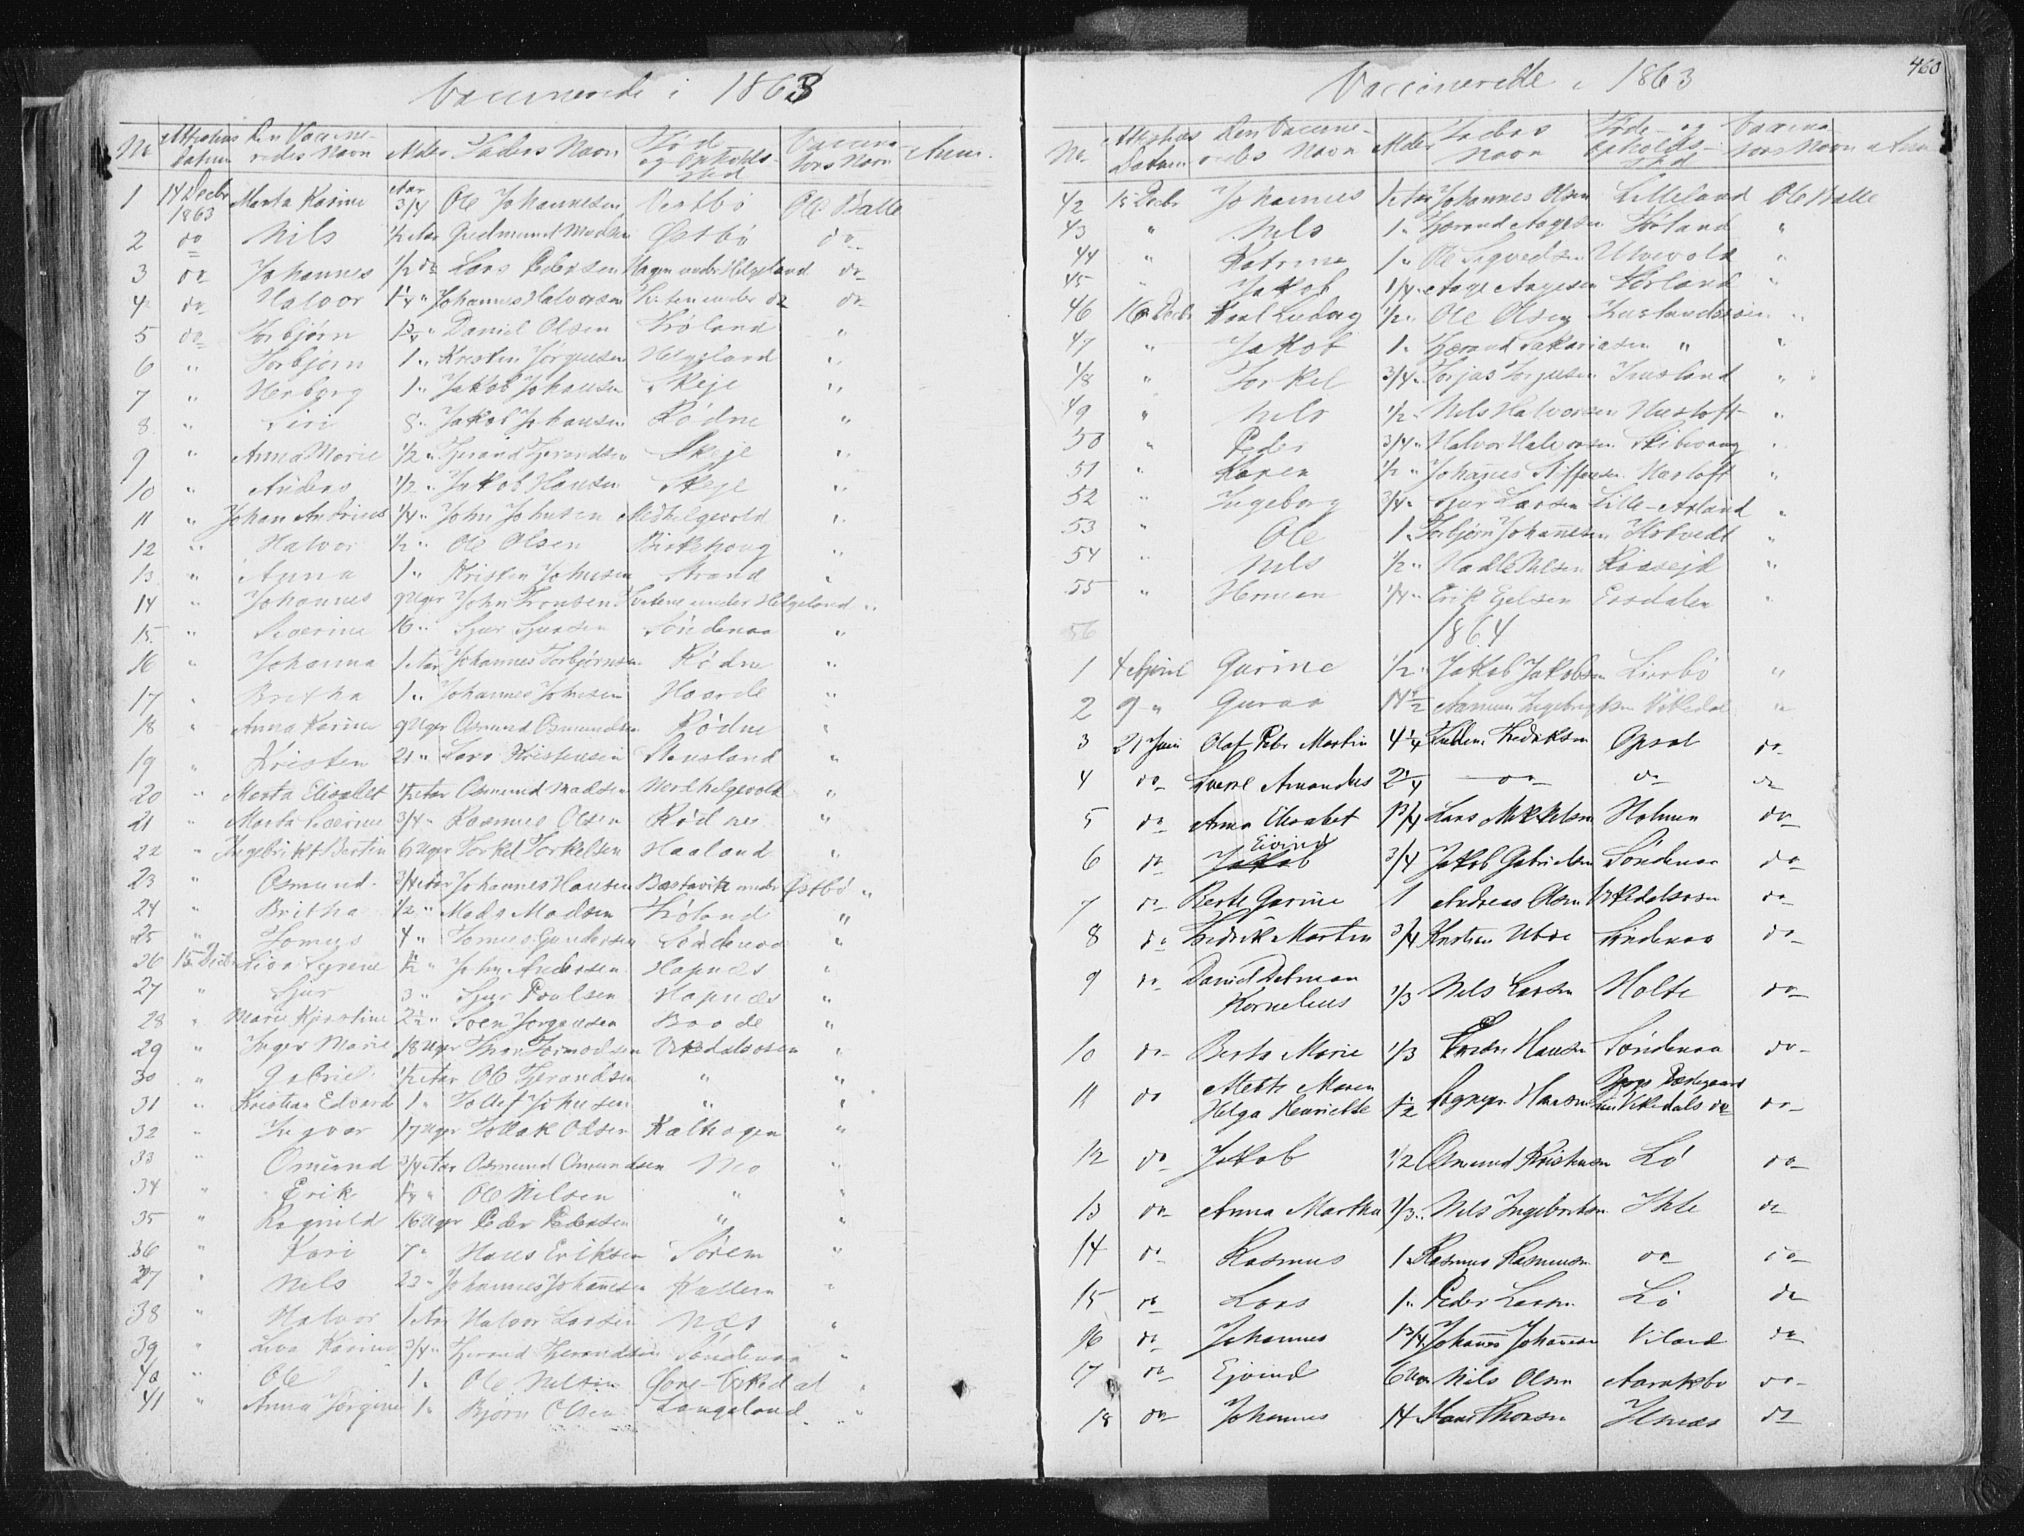 Vaccinerede i 1863
No Attestens Datum Den Vaccineredes Navn Alder Faders Navn Føde og Opholds-Sted Vaccinators Navn Anm.
1 14 Decbr 1863 Marta Karine Aar 3/4 Ole Johannesen Vestbø Ole Valle
2 do Nils 1/2 Aar Gudmund Madsen Østbø do
3 do Johannes 1/2 do Lars Pedersen Hagen under Helgeland do
4 do Halvor 1 1/4 " Johannes Halvorsen under do do
5 do Torbjørn Daniel Olsen Frøland "
6 " Torbjørn 1 " Kristen Jørgensen Helgeland "
7 " Herborg 1 " Jakob Johansen Skeje "
8 " Siri 8 " Jakob Johansen Rødne "
9 " Anna Marie 1/2 " Tjerand Tjerandsen Skeje "
10 " Anders 1/2 " Jakob Hansen Skeje "
11 " Johan Andreas 1/4 " John Johnsen Midhelgevold "
12 " Halvor 1/2 " Ole Olsen Birkehoug "
13 " Anna 1 " Kristen Johnsen Strand "
14 " Johannes 9 Uger John Tronsen under Helgeland "
15 " Severine 16 " Sjur Sjursen Søndenaa "
16 " Johanna 1 Aar Johannes Torbjørnsen Rødne "
17 " Britha 1 " Johannes Johnsen Haarde "
18 " Anna Karine 9 Uger Osmund Osmundsen Rødne "
19 " Kristen 21 " Lars Kristensen Stensland "
20 " Marta Elisabet 1/2 Aar Osmund Madsen Nordhelgevold "
21 " Marta Severine 3/4 " Rasmus Olsen Rødne "
22 " Ingebrikt Bertin 6 Uger Torkel Torkelsen Haaland "
23 " Osmund 3/4 Aar Johannes Hansen Bastavik under Østbø "
24 " Britha 1/2 " Mads Madsen Frøland "
25 " Tomes 4 " Tomes Gundersen Søndenaa "
26 15 Decbr John Andersen Hapnes "
27 " Sjur 3 " Sjur Poulsen Hapnes "
28 " Marie Kjerstine 2 1/2 " Sven Jørgensen Baade "
29 " Inger Marie 18 Uger Iver Tormodsen Vikedalsosen "
30 " Gabriel 1/2 Aar Ole Tjerandsen " "
31 " Kristian Edvard 1 " Tollef Johnsen " "
32 " Ingvar 17 Uger Tollak Olsen Kalhagen "
33 " Omund 3/4 Aar Osmund Omundsen Mo "
34 " Erik " Ole Nilsen " "
35 " Ragnild 16 Uger Peder Pedersen " "
36 " Kari 7 " Hans Eriksen Sørem "
37 " Nils 23 " Johannes Johannesen Kallem "
38 " Halvor 1 Aar Halvor Larsen Næs "
39 " Karine 3/4 " Tjerand Tjerandsen Søndenaa "
40 " Ole 1 " Ole Nilsen Øvre-Vikedal "
41 " Anna Jørgine 1 " Bjørn Olsen Langeland "
460
Vaccinerede i 1863
No. Attestens Datum Den Vaccineredes Navn Alder Faders Navn Føde- og Opholds-Sted Vaccinators Navn Anm
42 15 Decbr Johannes 1 Aar Johannes Olsen Lilleland Ole Valle
43 " Nils 1 " Tjerand Aagesen Førland "
44 " Katrine 1 " Ole Sigvedsen Ulvevold "
45 " Jakob 1/4 " Aage Aagesen Førland "
46 16 Decbr Karl Ludvig 1/2 " Ole Olsen "
47 " Jakob 1 " Tjerand Sakariasen " "
48 " Torkel 3/4 " Torjus Torjusen Imsland "
49 " Nils 1/2 " Nils Halvorsen Hustoft "
50 " Peder 3/4 " Halvor Halvorsen "
51 " Karen 1/2 " Johannes Hustoft "
52 " Ingeborg 3/4 " Sjur Larsen Lille-Axland "
53 " Ole 1 " Torbjørn Johannesen Hotvedt "
54 " Nils 1/2 " Nilsen "
55 " Herman 1/4 " Erik Ejelsen Espdalen "
56
1864
1 4 April Gurine 1/2 " Jakob Jakobsen Lirebø "
2 9 " Guraa 14 1/2 Ingebrigtsen Vikedal "
3 21 Juni Olaf Peder Martin 4 1/4 Fredriksen Opsal do
4 do Amandus 2 1/4 do do do
5 do Anna Elisabet 1 3/4 Lars Mikkelsen Holmen do
6 do Jakob Eivind 3/4 Jakob Gabrielsen Søndenaa do
7 do Berte Garine 1 Andreas Olsen Vikedalsosen do
8 do Fredrik Martin 3/4 Kristian Ubøe Søndenaa do
9 do Daniel Detman Kornelius 1/3 Nils Larsen Holte do
10 do Berta Marie 1/3 Hansen Søndenaa do
11 do Mette Maren Helga Henriette 1 1/2 Hansen Vikedals do
12 do Jakob 1/2 Osmund Kristensen Lø do
13 do Anna Martha 1/3 " Nils Ingebretsen Ihle do
14 do Rasmus 1 " Rasmus Rasmusen do do
15 do Lars 1 " Peder Larsen Lø do
16 do Johannes 1 3/4 Johannes Johannesen Viland do
17 do Ejvind 6 Nils Olsen Aarakbø do
18 do Johannes 14 Hans Thorsen do